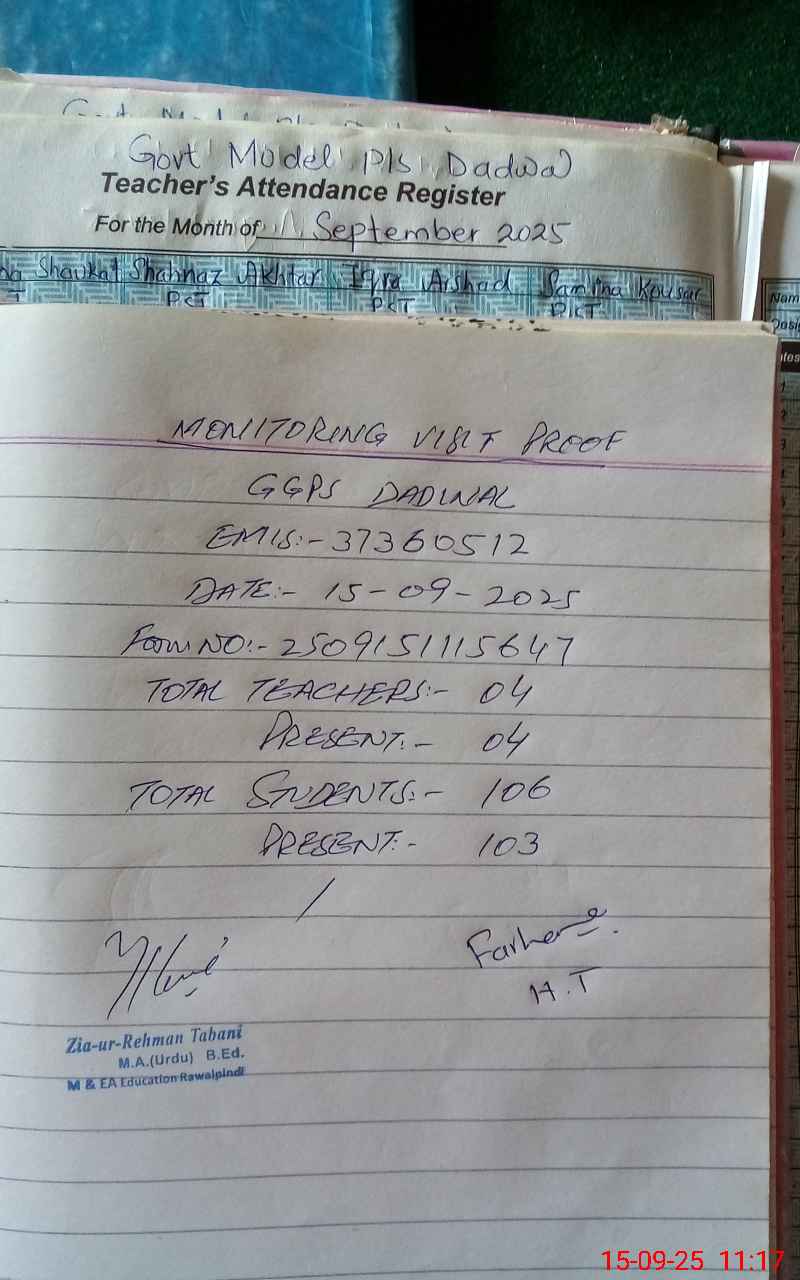 Govt Model P/S Dadwal
Teacher's Attendance Register
For the Month of September 2025
Shaukat Shahnaz Akhtar Iqra Arshad Samina Kousar
PST PST PST
Nam
Desig
ates
MONITORING VISIT PROOF
GGPS DADWAL
EMIS:- 37360512
DATE:- 15-09-2025
Form NO:- 2509151115647
TOTAL TEACHERS:- 04
PRESENT:- 04
TOTAL STUDENTS:- 106
PRESENT:- 103
Farhana
H.T
Zia-ur-Rehman Tabani
M.A.(Urdu) B.Ed.
M & EA Education Rawalpindi
15-09-25 11:17